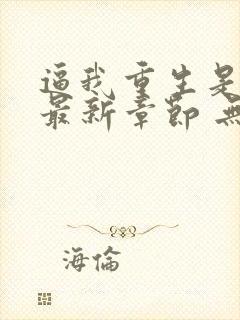 逼我重生是
最新章節 無
海倫